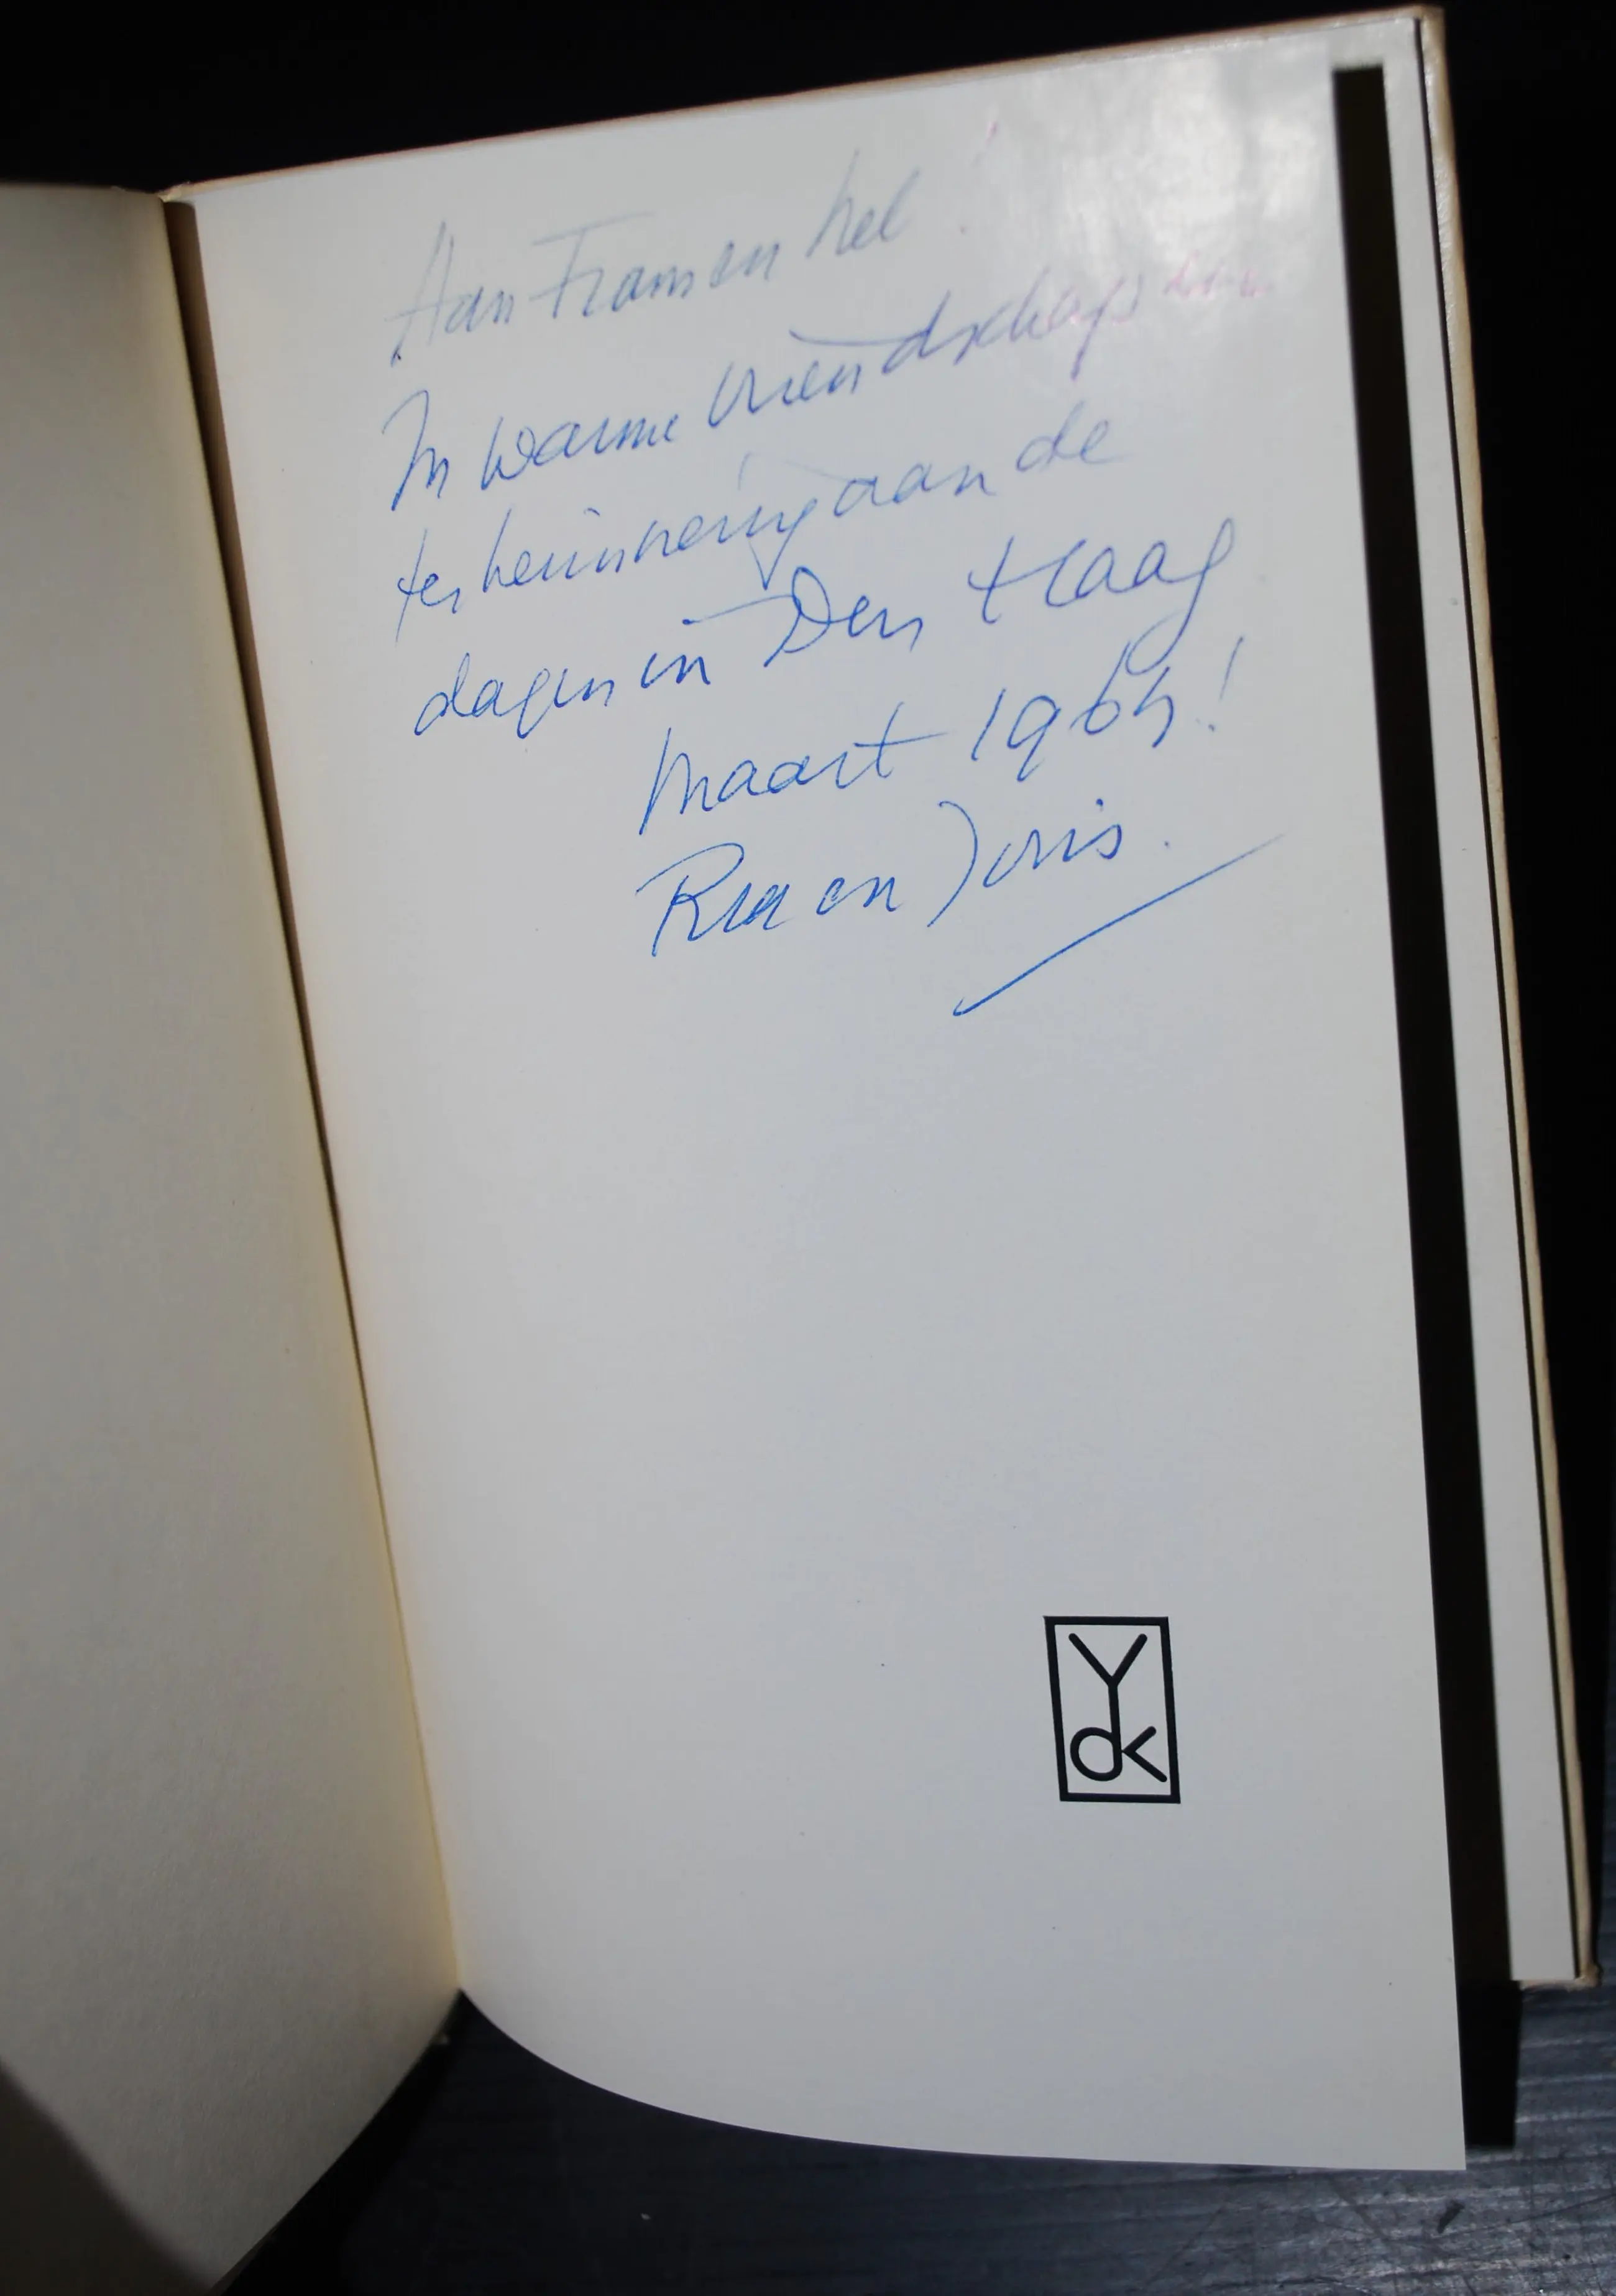 Aan Frans en Nel !
In warme vriendschap
ter herinnering aan de
dagen in Den Haag
Maart 1964!
Ria en Joris.
Ydk